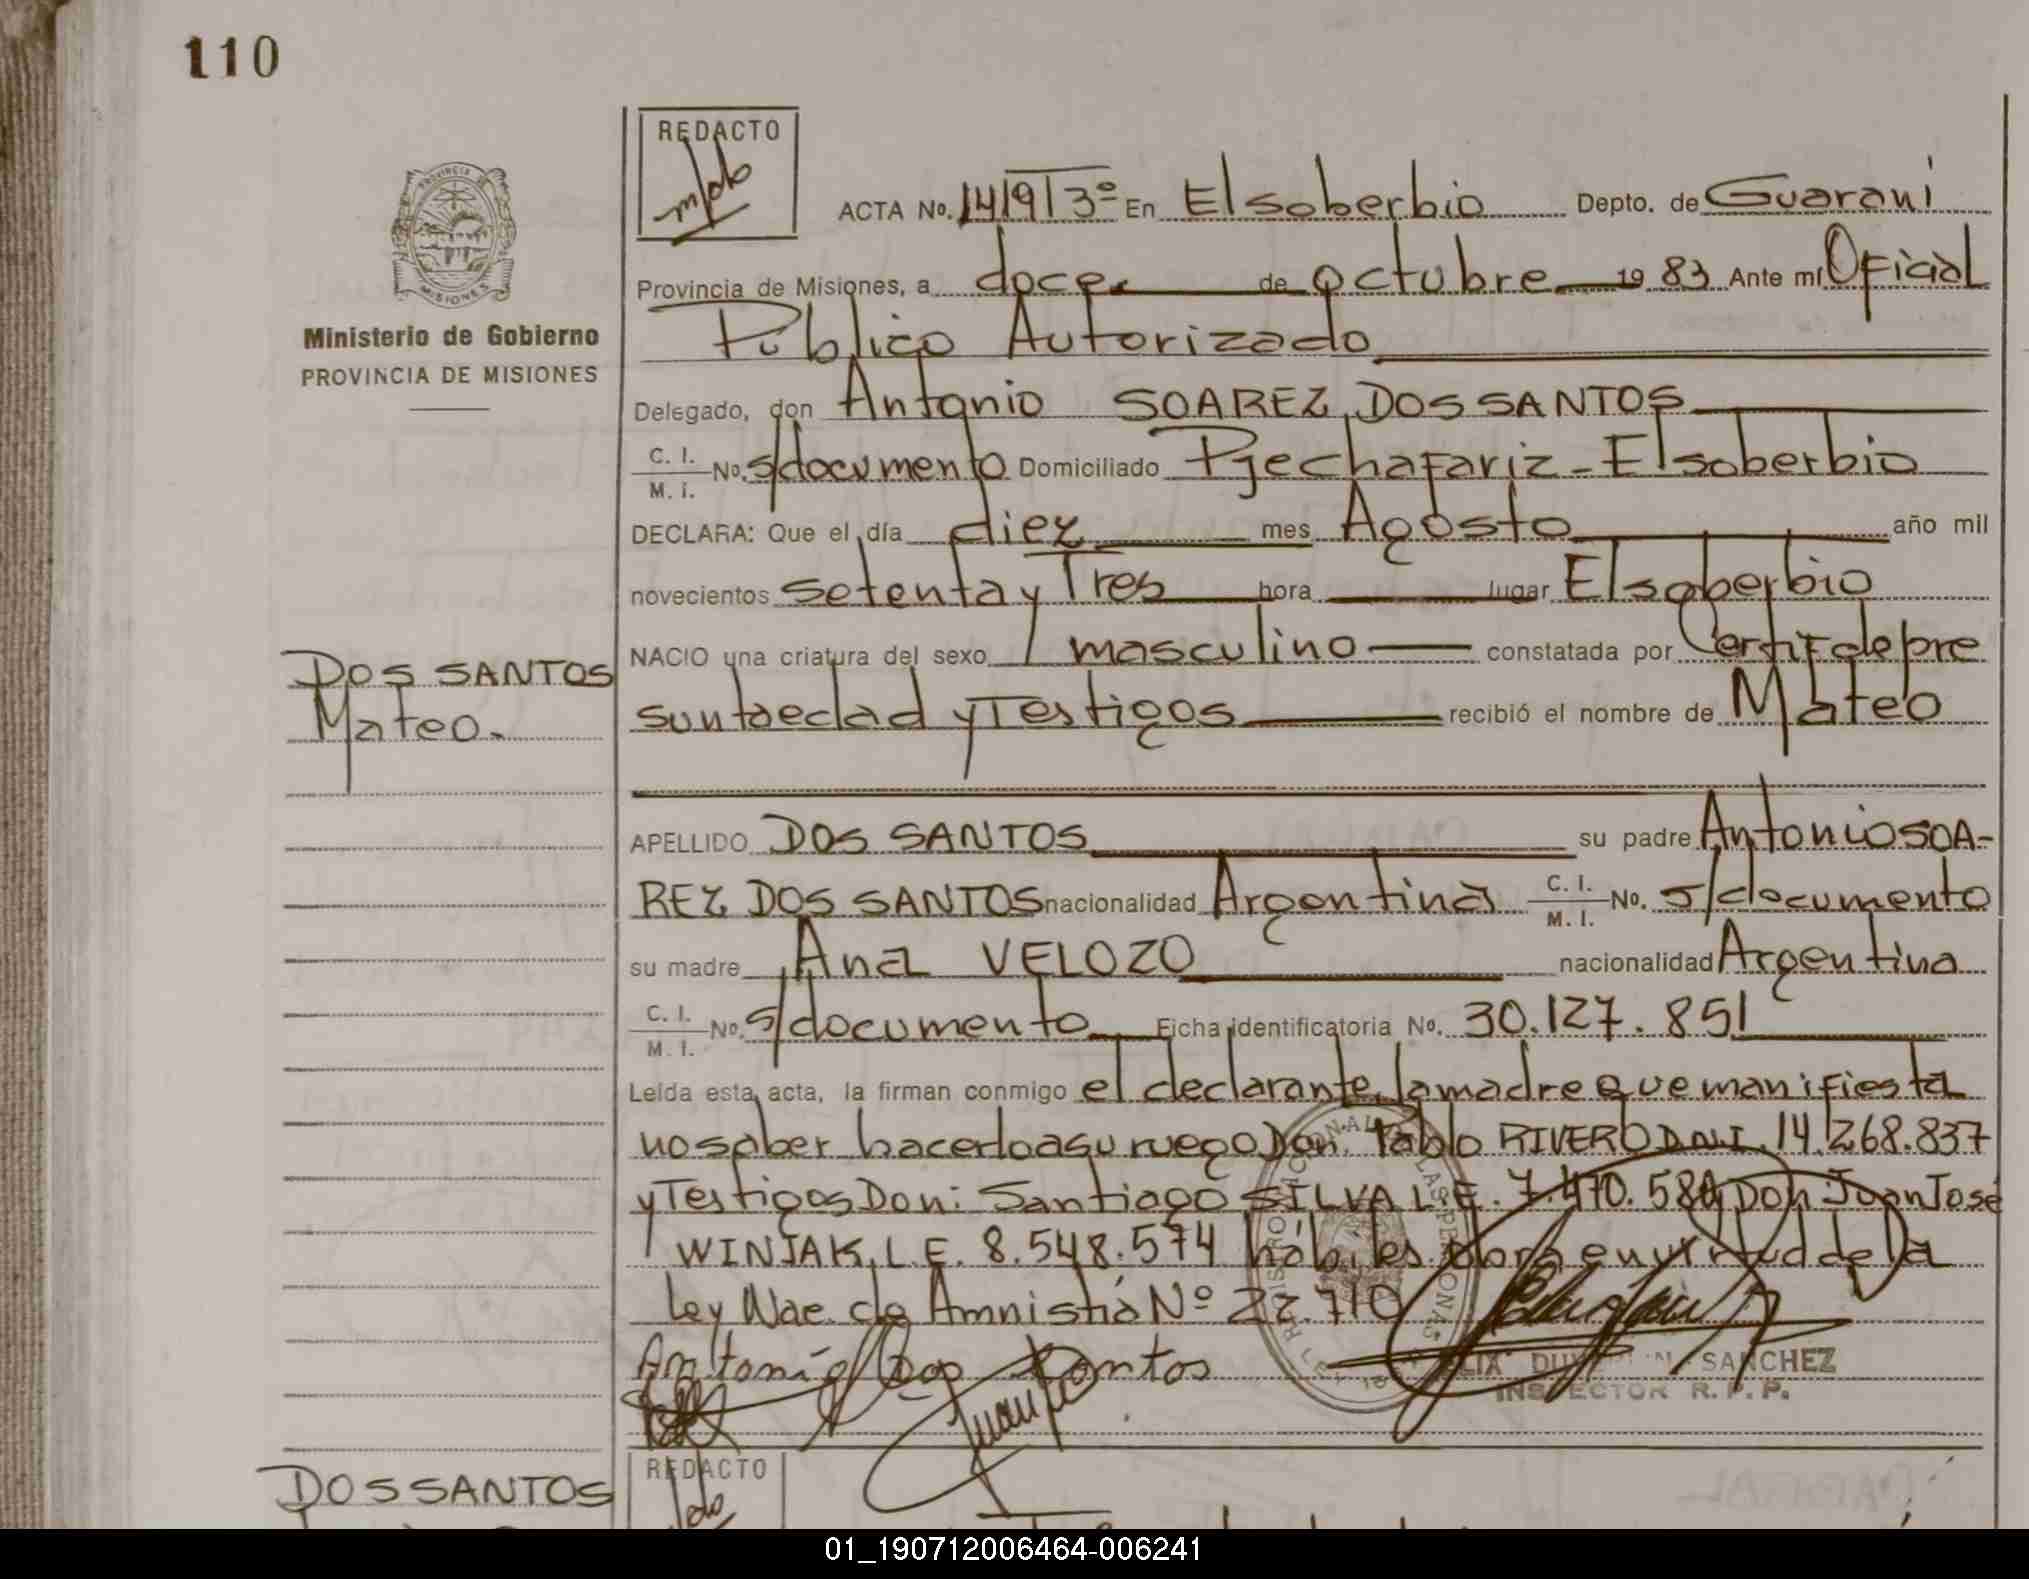 110
REDACTO
PROVINCIA DE
MISIONES
ACTA No. 1419 T 3º En El soberbio Depto. de Guarani
Provincia de Misiones, a doce de octubre 1983 Ante mí Oficial
Ministerio de Gobierno
Público Autorizado
PROVINCIA DE MISIONES
Delegado, don Antonio SOAREZ DOS SANTOS
C. I. M. I. No. s/documento Domiciliado Pje chafariz - El soberbio
DECLARA: Que el día diez mes Agosto año mil
novecientos setenta y Tres hora lugar El soberbio
NACIO una criatura del sexo masculino constatada por Certif de pre
DOS SANTOS
sunta edad y Testigos recibió el nombre de Mateo
Mateo.
APELLIDO DOS SANTOS su padre Antonio SOA-
REZ DOS SANTOS nacionalidad Argentina C. I. M. I. No. s/documento
su madre Ana VELOZO nacionalidad Argentina
C. I. M. I. No. s/documento Ficha identificatoria No. 30.127.851
Leída esta acta, la firman conmigo el declarante, la madre que manifiesta
no saber hacerlo a su ruego Don: Pablo RIVERO D.N.I. 14.268.837
y Testigos Don: Santiago SILVA L.E. 7.470.580 Don Juan José
WINJAK, L.E. 8.548.574 hábiles obra en virtud de la
Ley Nac. de Amnistia Nº 22.710
Antonio Dos Santos
SANCHEZ
INSPECTOR R. P. P.
REDACTO
DOS SANTOS
01_190712006464-006241